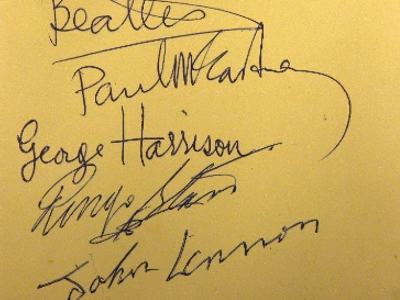 Beatles
Paul McCartney
George Harrison
Ringo Starr
John Lennon